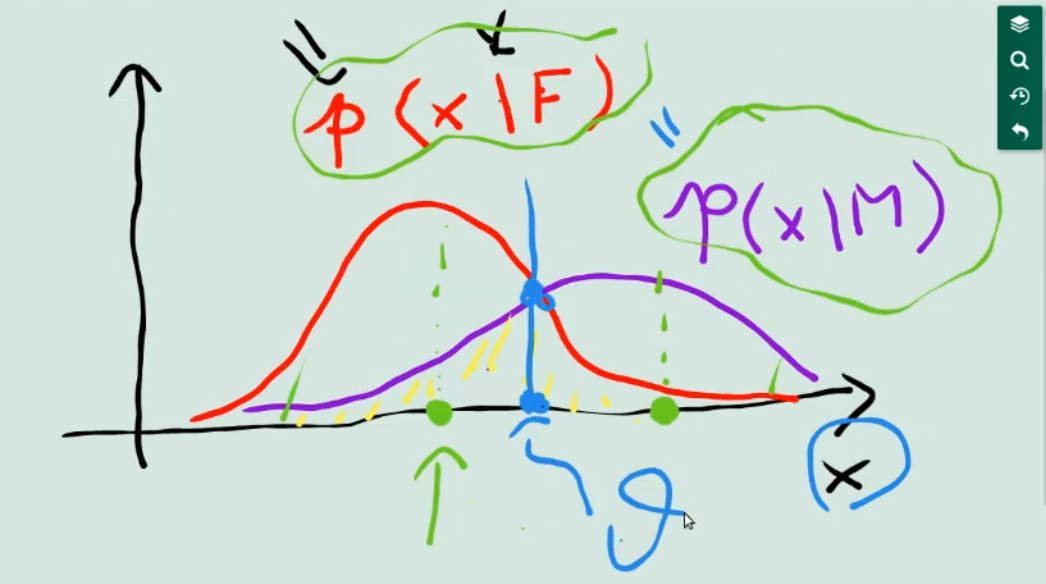 p(x|F)
p(x|M)
x
ϑ